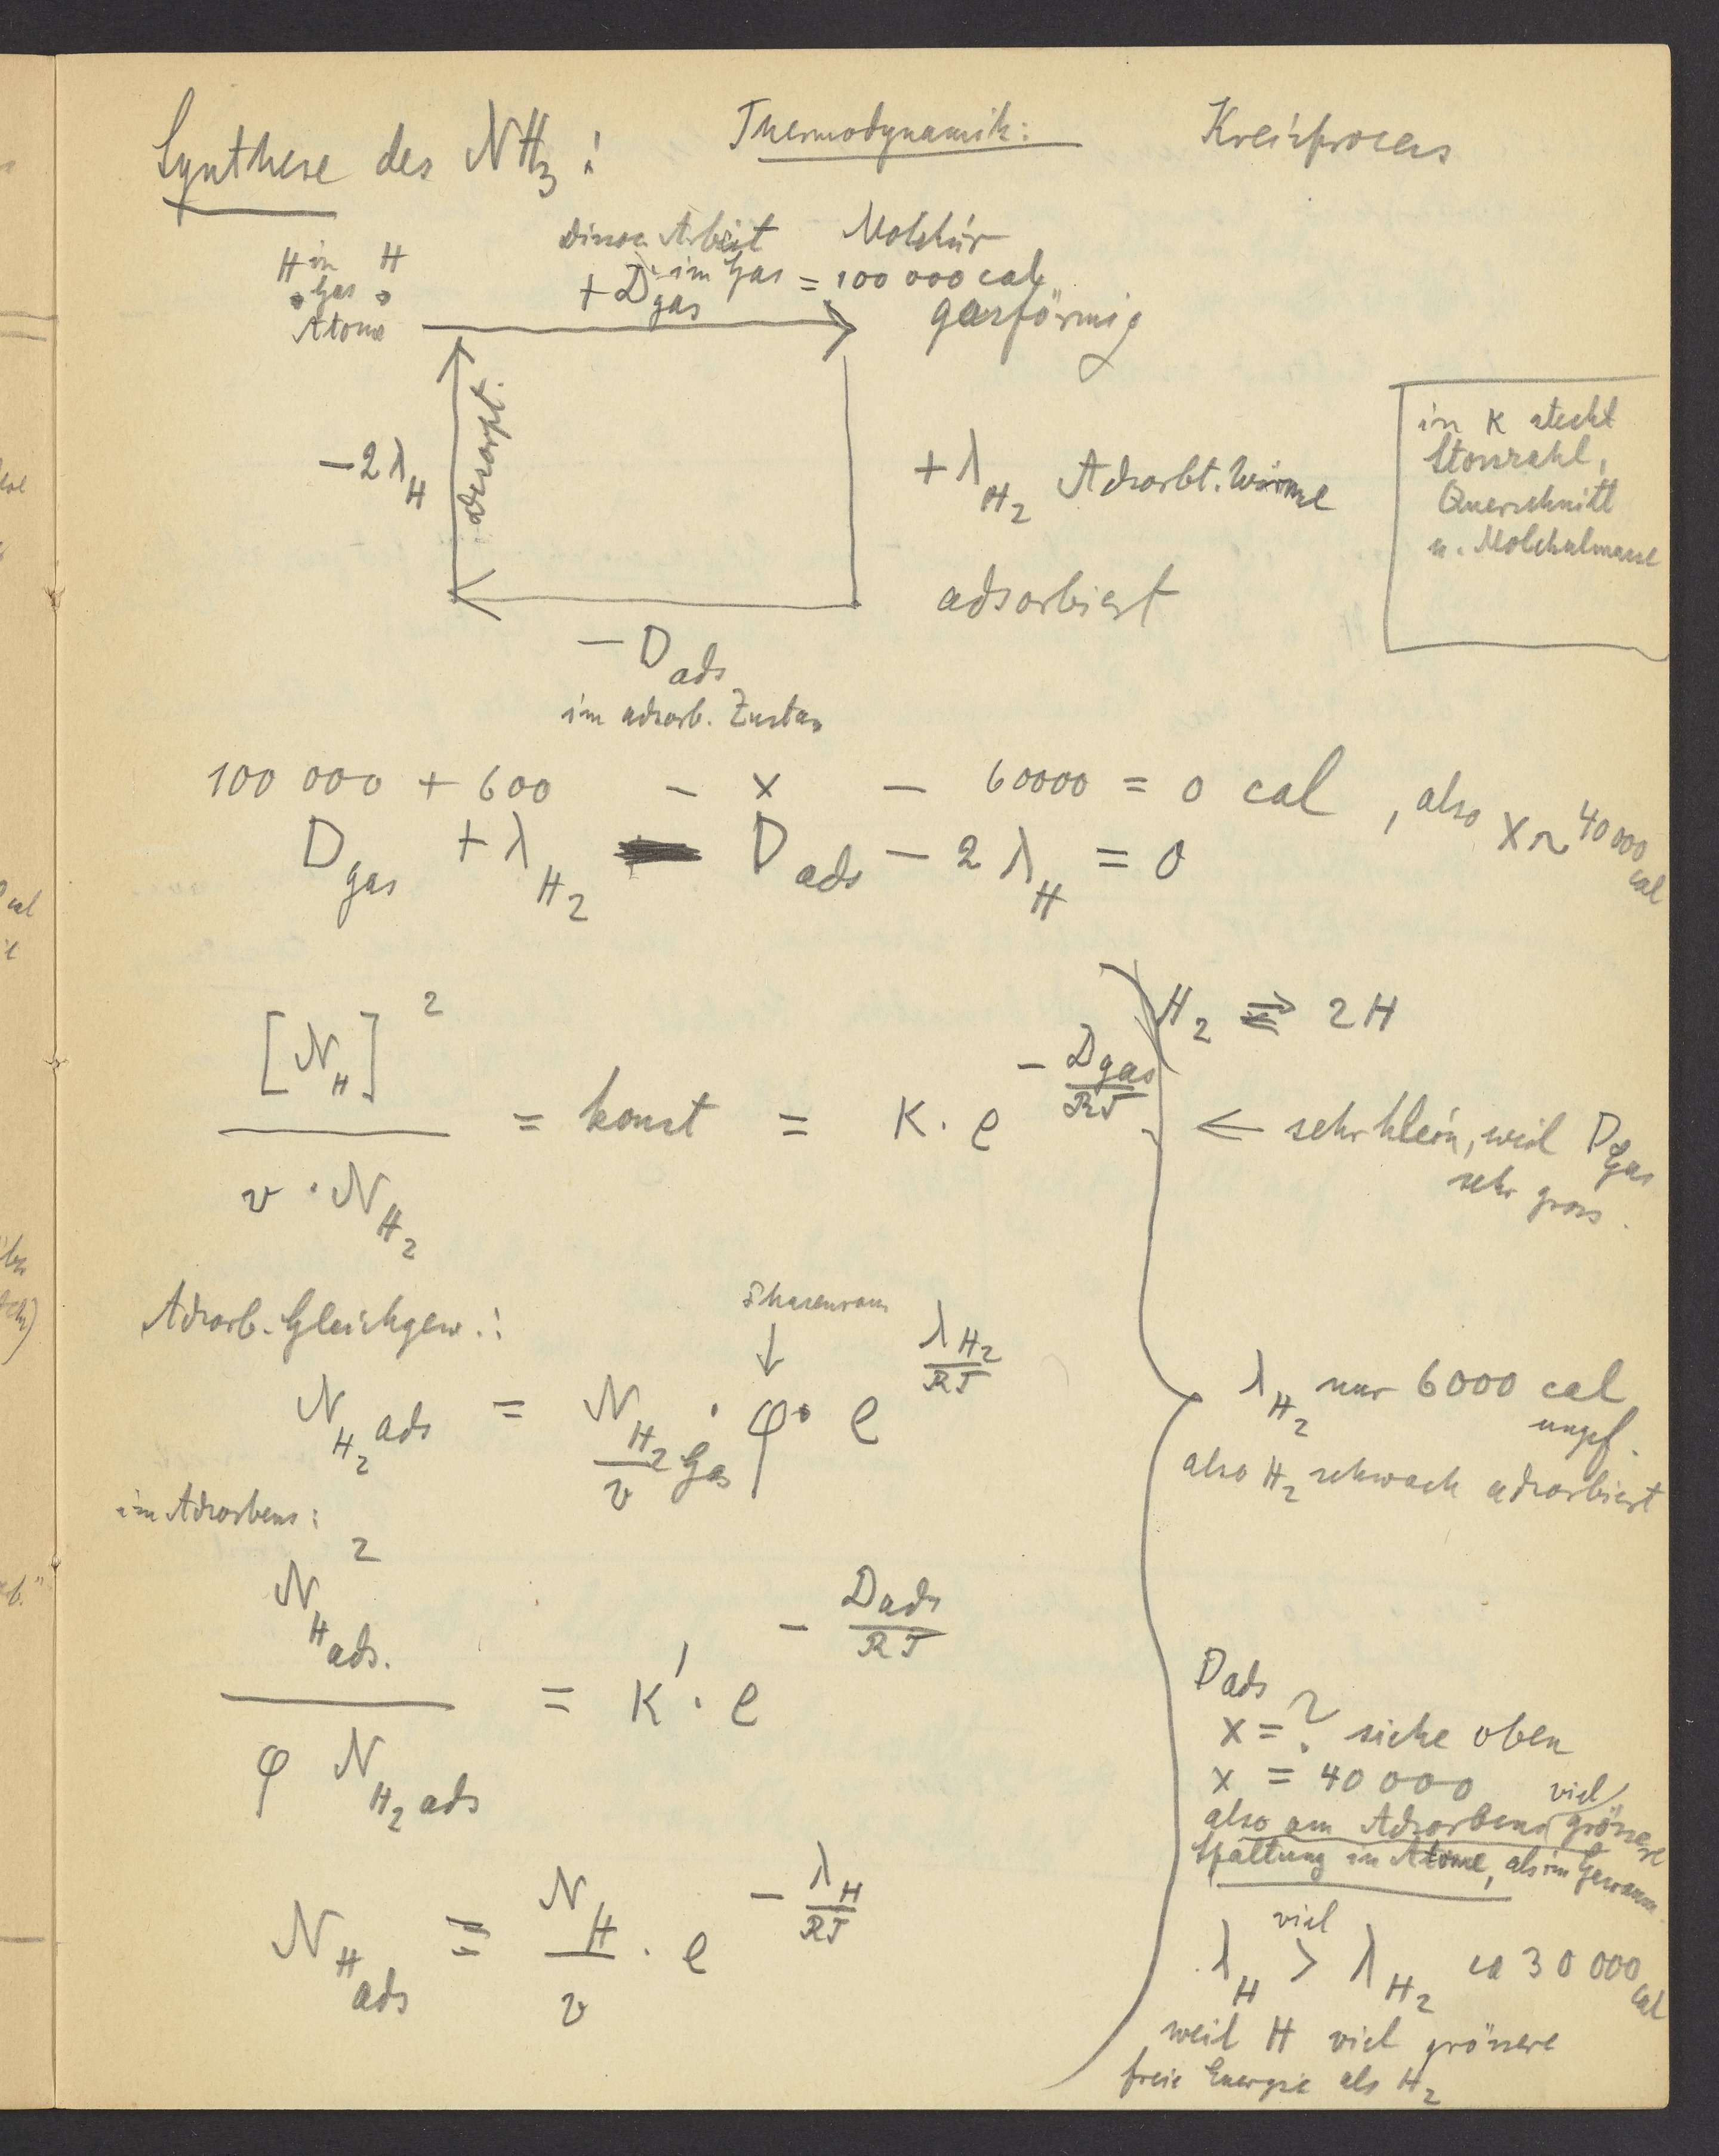 Synthese des NH3:
Thermodynamik:
Kreisprocess
H in H
Gas
Atome
Dissoc Arbeit
im Gas = 100 000 cal
+ D gas
Molekül
gasförmig
- 2 λ H
Desorpt.
+ λ H2 Adsorbt. Wärme
adsorbiert
- D ads
im adsorb. Zustan
in K steckt
Stosszahl,
Querschnitt
u. Molekulmasse
100 000 + 600 - x - 60000 = 0 cal, also x ~ 40 000 cal
D gas + λ H2 - D ads - 2 λ H = 0
[N H]² / v · N H2 = konst = K · e^(- D gas / RT)
H2 ⇌ 2H
← sehr klein, weil D gas
sehr gross.
Adsorb. Gleichgew.:
Phasenraum
↓
N H2 ads = N H2 Gas / v · φ · e^(λ H2 / RT)
λ H2 nur 6000 cal
ungef.
also H2 schwach adsorbiert
im Adsorbens:
N² H ads. / φ N H2 ads = K' · e^(- D ads / RT)
D ads
x = ? siehe oben
x = 40 000
also am Adsorbens viel grössere
Spaltung in Atome, als im Gasraum.
N H ads = N H / v · e^(- λ H / RT)
viel
λ H > λ H2 ca 30 000 cal
weil H viel grössere
freie Energie als H2